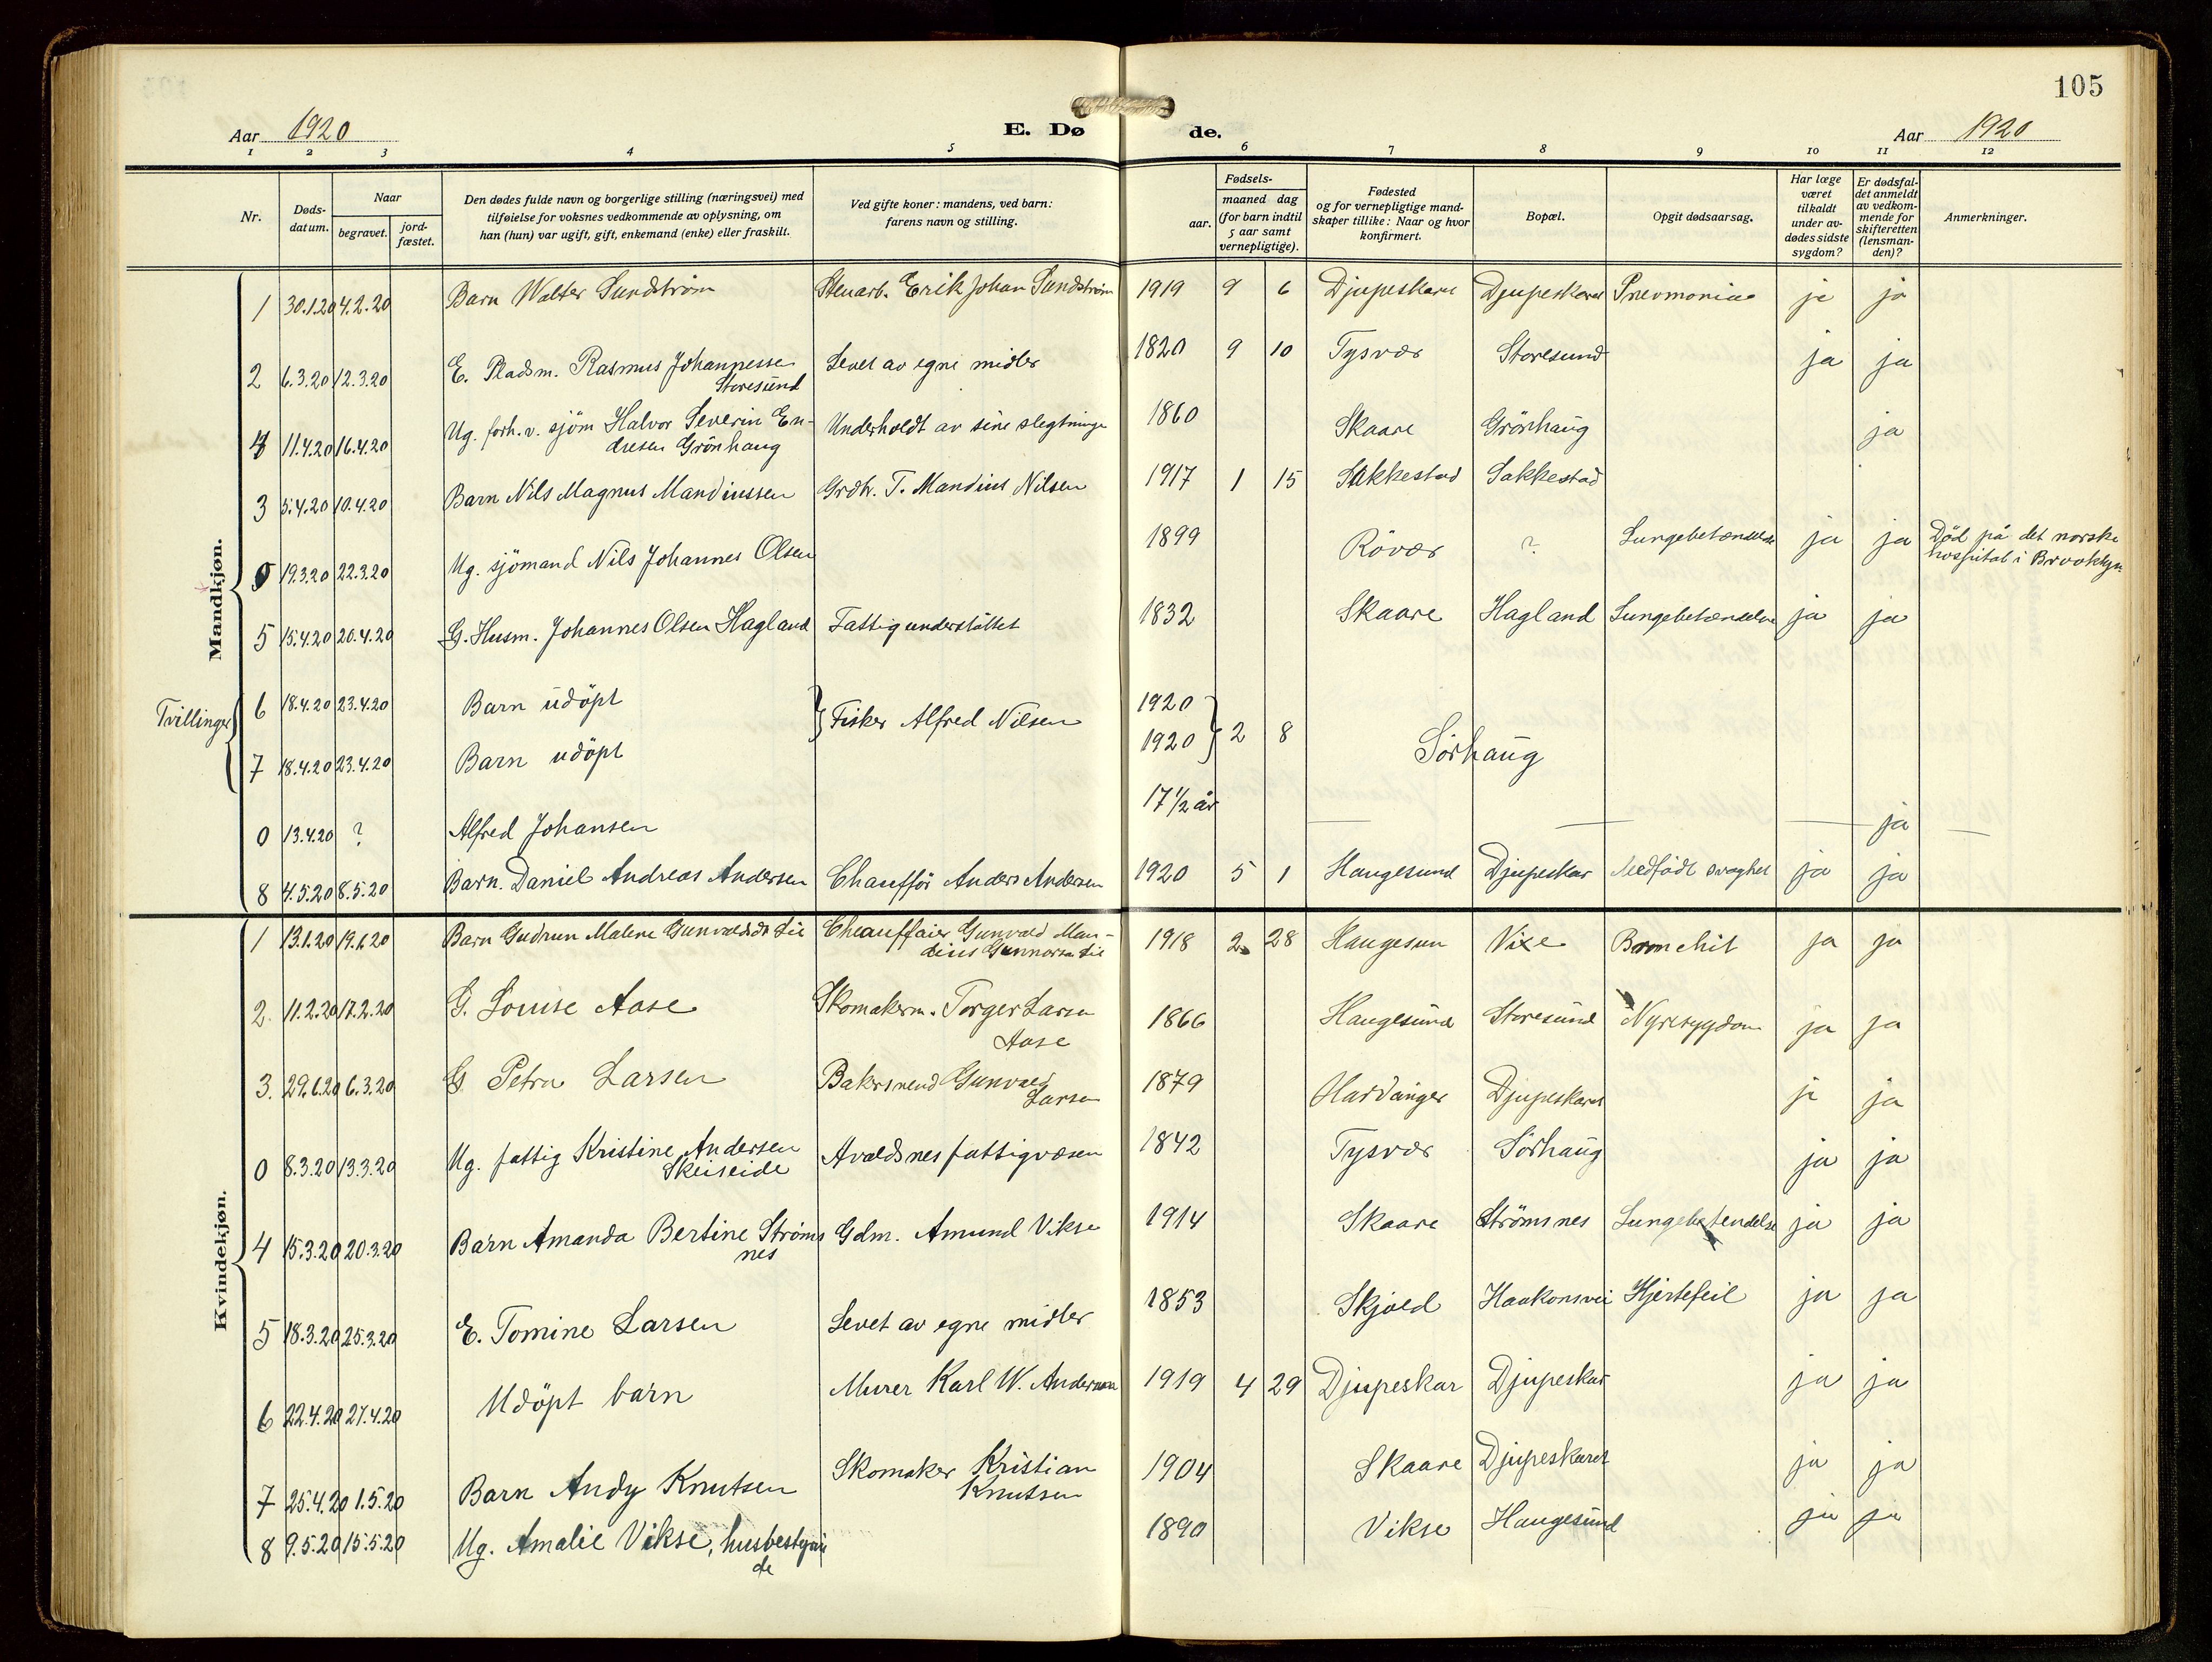 105
Aar 1920
E. Dø de.
Aar 1920
1 2 3 4 5 6 7 8 9 10 11 12
Nr.
Døds-
datum.
Naar
begravet.
jord-
fæstet.
Den dødes fulde navn og borgerlige stilling (næringsvei) med
tilføielse for voksnes vedkommende av oplysning, om
han (hun) var ugift, gift, enkemand (enke) eller fraskilt.
Ved gifte koner: mandens, ved barn:
farens navn og stilling.
aar.
Fødsels-
maaned dag
(for barn indtil
5 aar samt
vernepligtige).
Fødested
og for vernepligtige mand-
skaper tillike: Naar og hvor
konfirmert.
Bopæl.
Opgit dødsaarsag.
Har læge
været
tilkaldt
under av-
dødes sidste
sygdom?
Er dødsfal-
det anmeldt
av vedkom-
mende for
skifteretten
(lensman-
den)?
Anmerkninger.
Mandkjøn.
1 30.1.20 4.2.20 Barn Walter Sundström Stenarb. Erik Johan Sundström 1919 9 6 Djupeskaret Djupeskaret Pneumonia ja ja
2 6.3.20 12.3.20 E. Pladsm. Rasmus Johannessen Levet av egne midler 1820 9 10 Tysvær Storesund ja ja
Storesund
4 11.4.20 16.4.20 Ug. forh. v. sjöm Halvor Severin En- Underholdt av sine slegtninge 1860 Skaare Grönhaug ja
dresen Grönhaug
3 5.4.20 10.4.20 Barn Nils Magnus Mandiussen Grdbr. T. Mandius Nilsen 1917 1 15 Sakkestad Sakkestad
0 19.3.20 22.3.20 Ug. sjömand Nils Johannes Olsen 1899 Rövær ? Lungebetændelse ja ja Död på det norske
hospital i Brooklyn
5 15.4.20 20.4.20 G. Husm. Johannes Olsen Hagland Fattigunderstöttet 1832 Skaare Hagland Lungebetændelse ja ja
Tvillinger
6 18.4.20 23.4.20 Barn udöpt Fisker Alfred Nilsen 1920 2 8 Sörhaug
7 18.4.20 23.4.20 Barn udöpt 1920
0 13.4.20 ? Alfred Johansen 17 1/2 år — — — ja —
8 4.5.20 8.5.20 Barn. Daniel Andreas Andersen Chaufför Anders Andersen 1920 5 1 Haugesund Djupeskar Medfödt svaghet ja ja
Kvindekjøn.
1 13.1.20 19.1.20 Barn Gudrun Malene Gunvaldsdt Lie Chauffør Gunvald Man-
dius Gunnarsen Lie 1918 2 28 Haugesun Vixe Bronchit ja ja
2. 11.2.20 17.2.20 G. Louise Aase Skomakerm. Torger Larsen
Aase 1866 Haugesund Storesund Nyresygdom ja ja
3. 29.6.20 6.3.20 G. Petra Larsen Bakersvend Gunvald
Larsen 1879 Hardanger Djupeskaret ja ja
0 8.3.20 13.3.20 Ug. fattig Kristine Andersen Avaldsnes fattigvæsen 1842 Tysvær Sörhaug ja ja
Skeiseide
4 15.3.20 20.3.20 Barn Amanda Bertine Ströms Gdm. Amund Vikse 1914 Skaare Strömsnes Lungebetendelse ja ja
nes
5 18.3.20 25.3.20 E. Tomine Larsen Levet av egne midler 1853 Skjold Haakonsvei Hjertefeil ja ja
6 22.4.20 27.4.20 Udöpt barn Murer Karl W. Andersen 1919 4 29 Djupeskar Djupeskar ja ja
7 25.4.20 1.5.20 Barn Andy Knutsen Skomaker Kristian
Knutsen 1904 Skaare Djupeskaret ja ja
8 9.5.20 15.5.20 Ug. Amalie Vikse, husbestyrin
de 1890 Vikse Haugesund ja ja